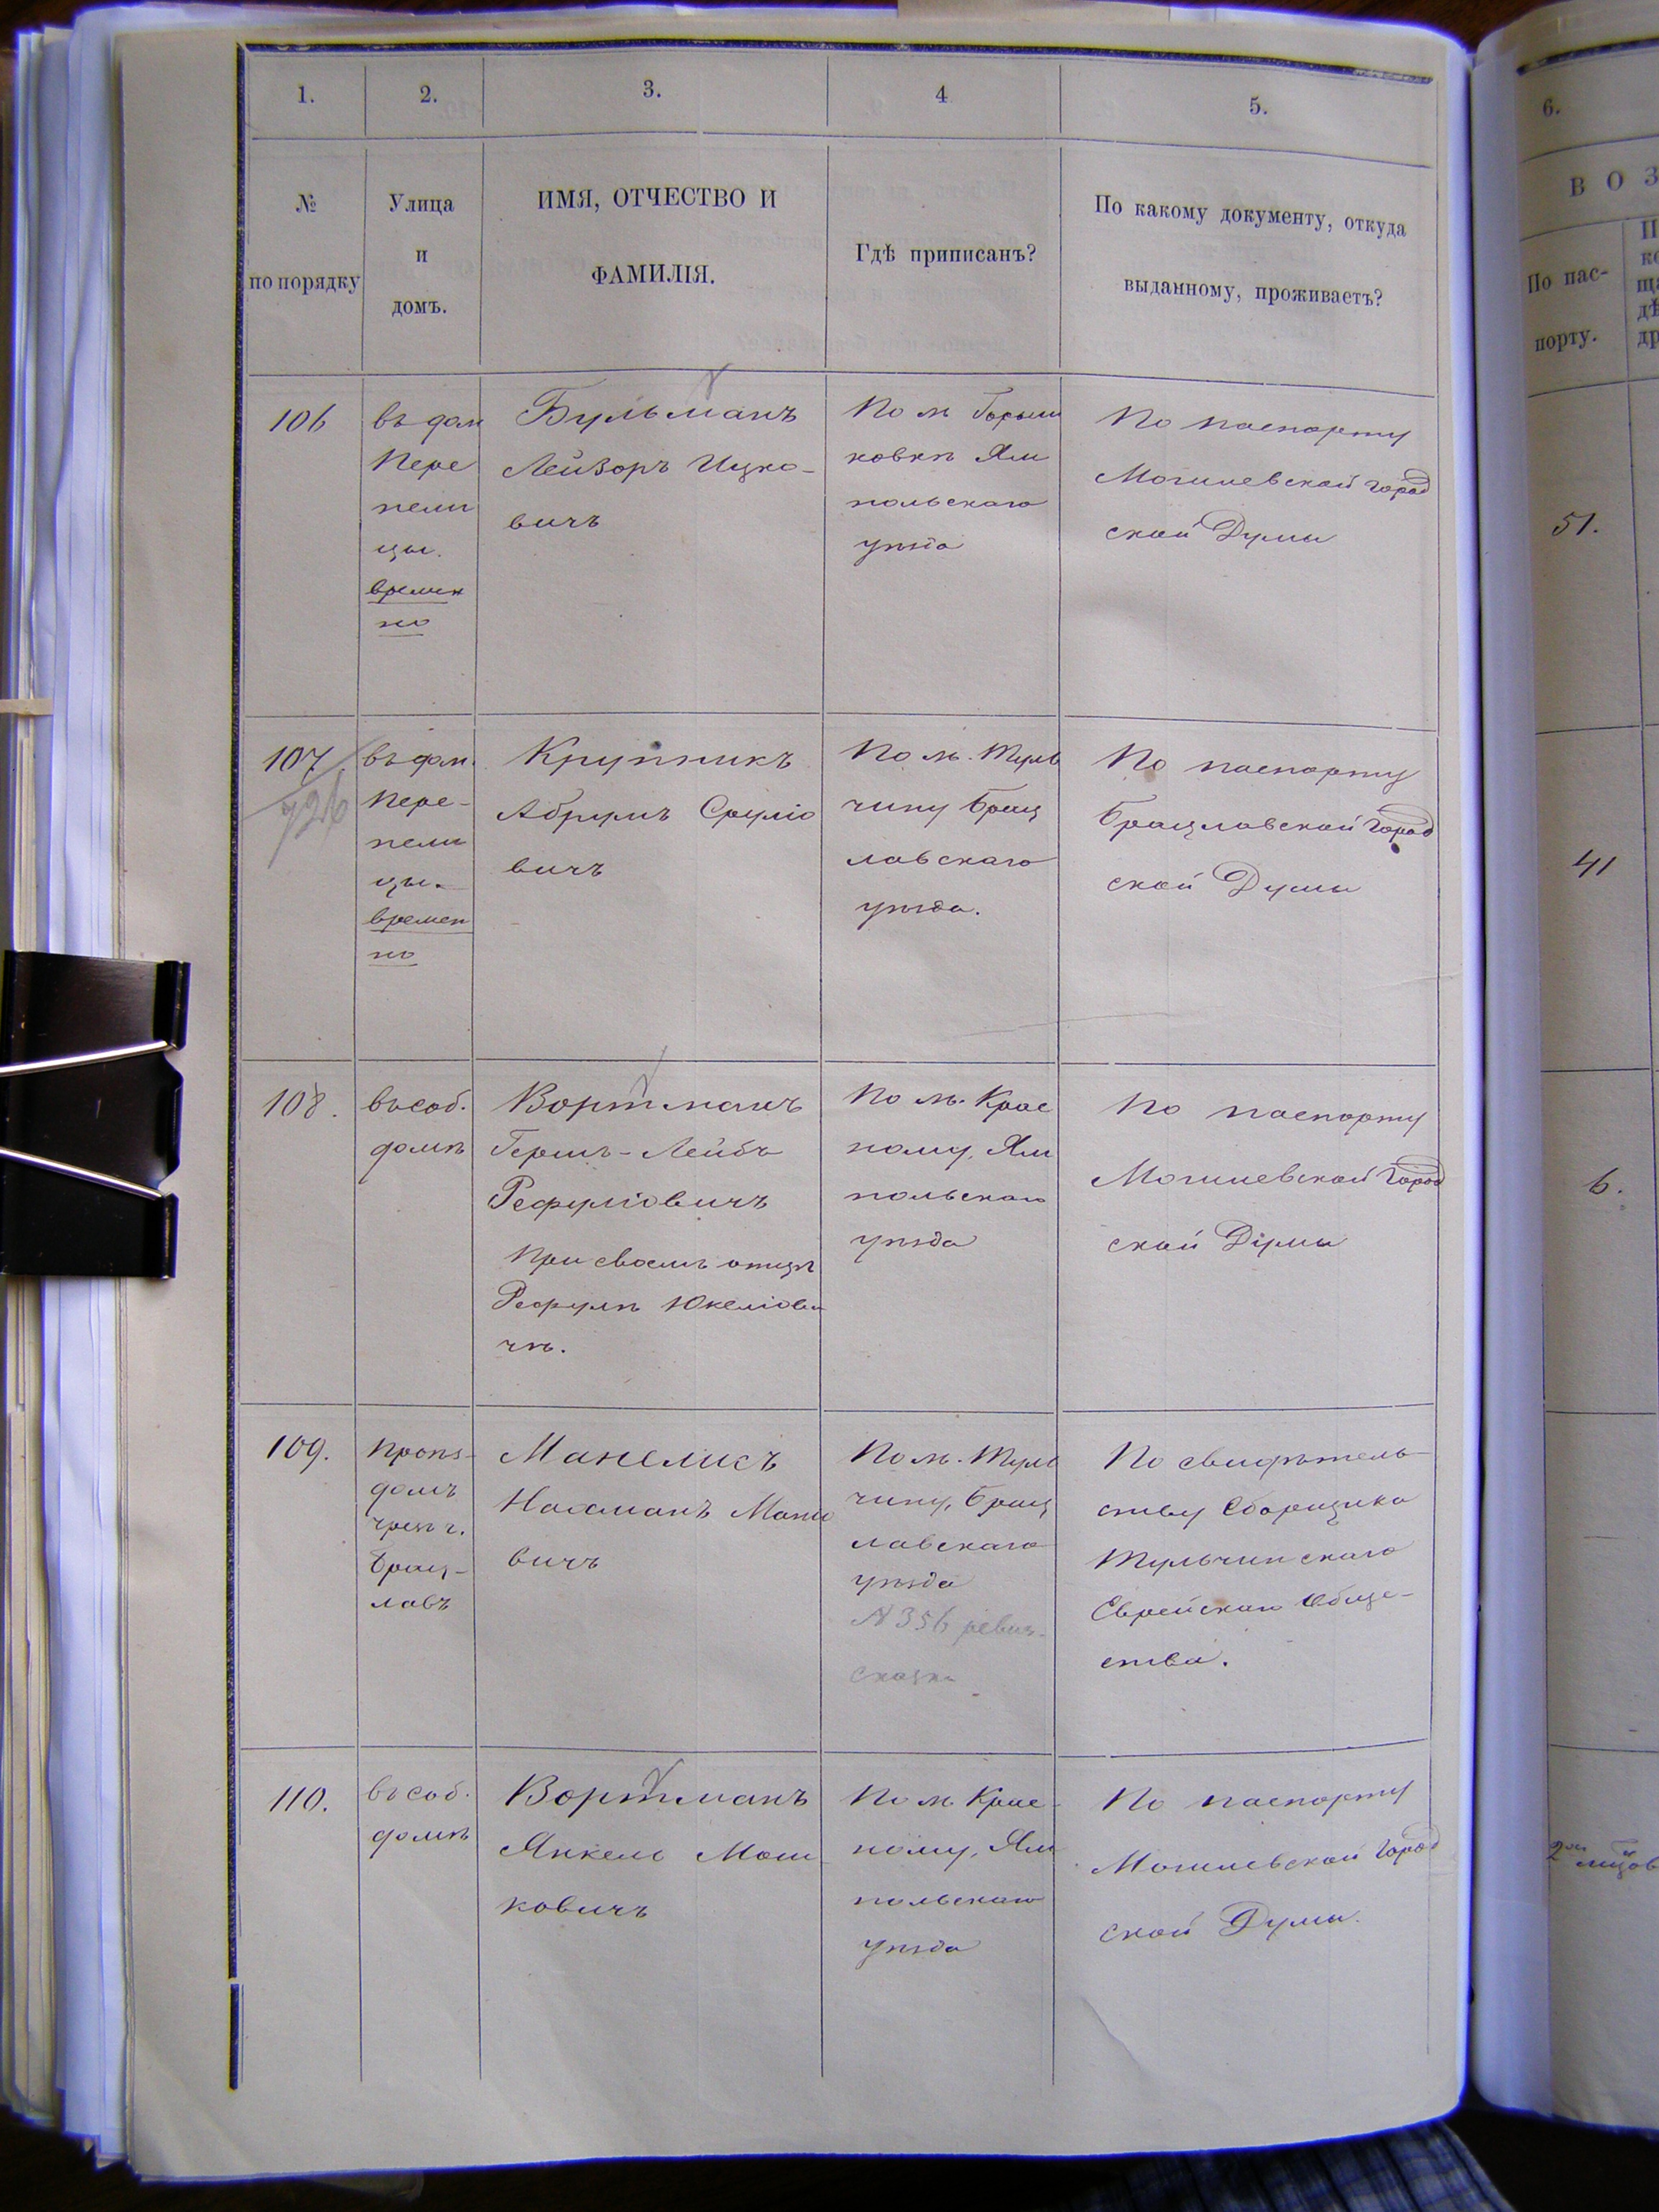 1.
2.
3.
4
5.
№
по порядку
Улица
и
домъ.
ИМЯ, ОТЧЕСТВО И
ФАМИЛІЯ.
Гдѣ приписанъ?
По какому документу, откуда
выданному, проживаетъ?
106
въ дом
Пере
пели
цы.
времен
но
Бульманъ
Лейзоръ Ицко-
вичъ
По м
ковкѣ Ям
польскаго
уѣзда
По паспорту
Могилевской город
ской Думы
107
726
въ дом.
Пере-
пели
цы.
времен
но
Крупникъ
Абрумъ Сруліо
вичъ
По м. Туль
чину Брац
лавскаго
уѣзда.
По паспорту
Брацлавской Город
ской Думы
108.
въ соб.
домѣ
Вортманъ
Гершъ-Лейбъ
Рефуліовичъ
При своемъ отцѣ
Рефулѣ Юкеліови
чѣ.
По м. Крас
ному, Ям
польскаго
уѣзда
По паспорту
Могилевской Город
ской Думы
109.
домъ
чрез г.
Брац-
лавъ
Манелисъ
Нахманъ
вичъ
По м. Туль
чину, Брац
лавскаго
уѣзда
№ 356 ревиз.
сказк.
По свидѣтель
ству Сборщика
Тульчинскаго
Еврейскаго Обще-
ства.
110.
въ соб.
домѣ
Вортманъ
Янкель Мош
ковичъ
По м. Крас-
ному, Ям
польскаго
уѣзда
По паспорту
Могилевской Город
ской Думы.
6.
В О З
По пас-
порту.
П
ко
ща
дѣ
др
51.
41
6.